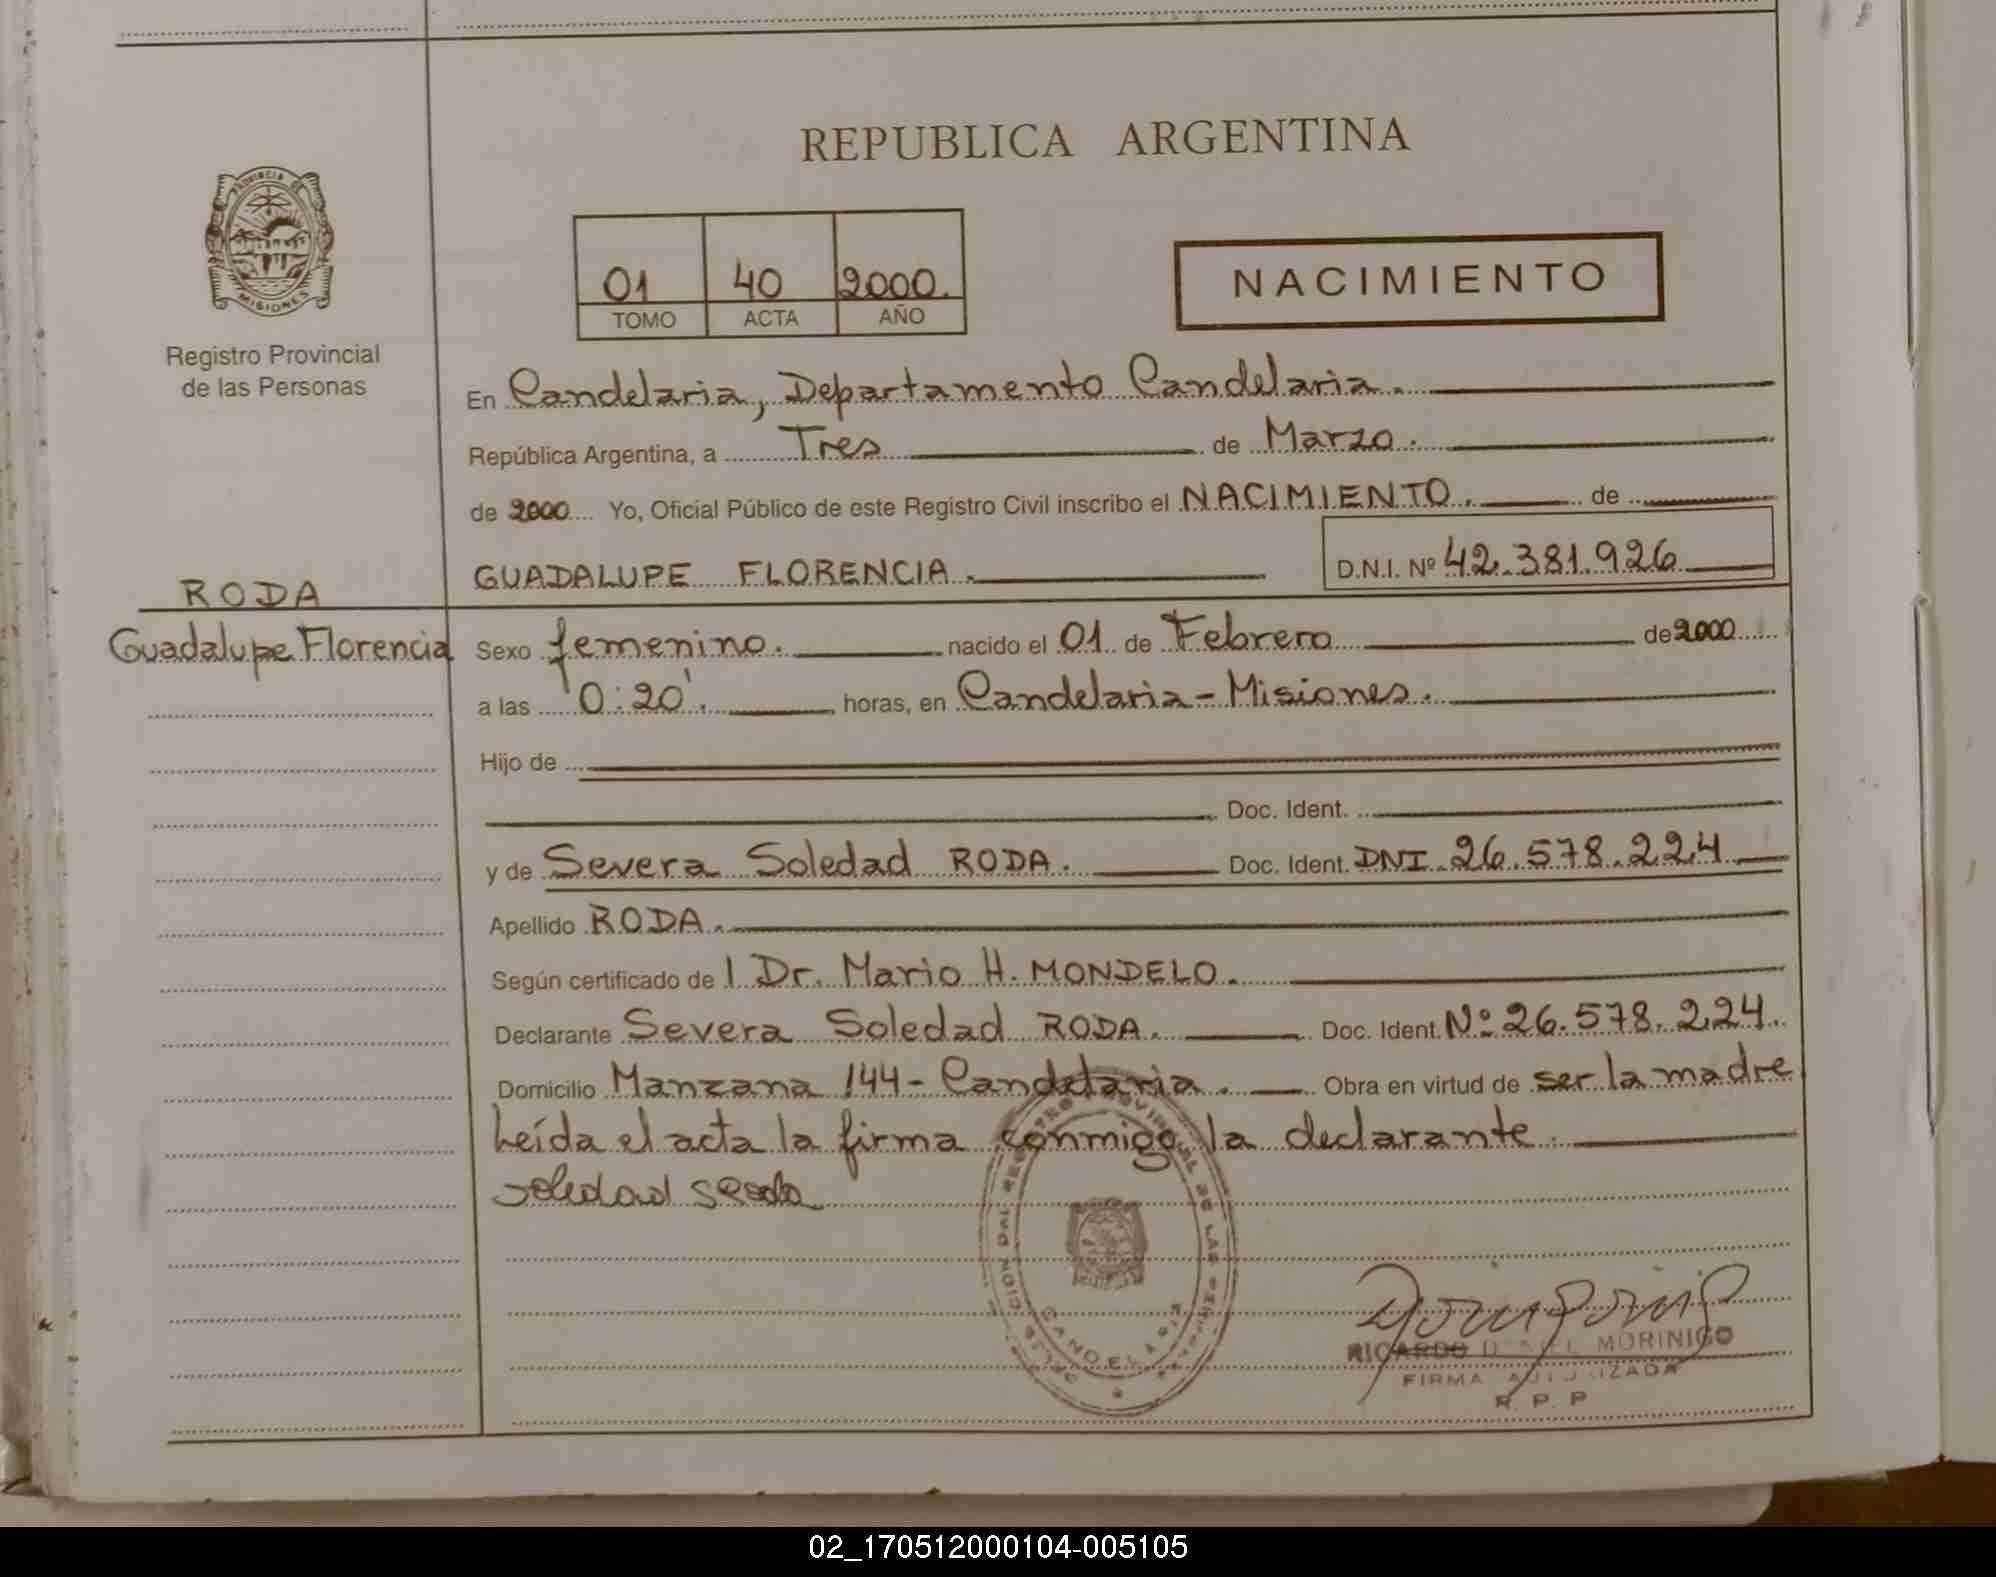 REPUBLICA ARGENTINA
PROVINCIA DE
MISIONES
01 40 2000.
TOMO ACTA AÑO
NACIMIENTO
Registro Provincial
de las Personas
En Candelaria, Departamento Candelaria.
República Argentina, a Tres de Marzo.
de 2000 Yo, Oficial Público de este Registro Civil inscribo el NACIMIENTO. de
GUADALUPE FLORENCIA. D.N.I. Nº 42.381.926
RODA
Guadalupe Florencia
Sexo femenino. nacido el 01 de Febrero de 2000
a las 0:20'. horas, en Candelaria - Misiones.
Hijo de
Doc. Ident.
y de Severa Soledad RODA. Doc. Ident. DNI 26.578.224
Apellido RODA.
Según certificado de l Dr. Mario H. MONDELO.
Declarante Severa Soledad RODA. Doc. Ident. Nº 26.578.224.
Domicilio Manzana 144 - Candelaria. Obra en virtud de ser la madre
Leída el acta la firma conmigo la declarante.
Soledad
CANDELARIA
RICARDO DANIEL MORINIGO
FIRMA AUTORIZADA
R. P. P
02_170512000104-005105